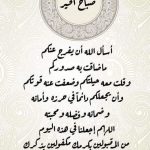 صباح الخير
أسأل الله أن يفرج عنكم
ماضاقت به صدوركم
وقلت معه حيلتكم وضعفت عنه قوتكم
وأن يجعلكم دائماً في حرزه وأمانه
وضمانه وفضله ومحبته
اللهم إجعلنا في هذه اليوم
من المقبولين بكرمك مكفولين بذكرك